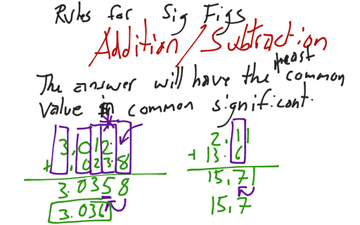 Rules for Sig Figs
Addition / Subtraction
The answer will have the least common
value in common significant.
3.012
+ .0238
3.0358
3.036
2.11
+ 13.6
15.71
15.7